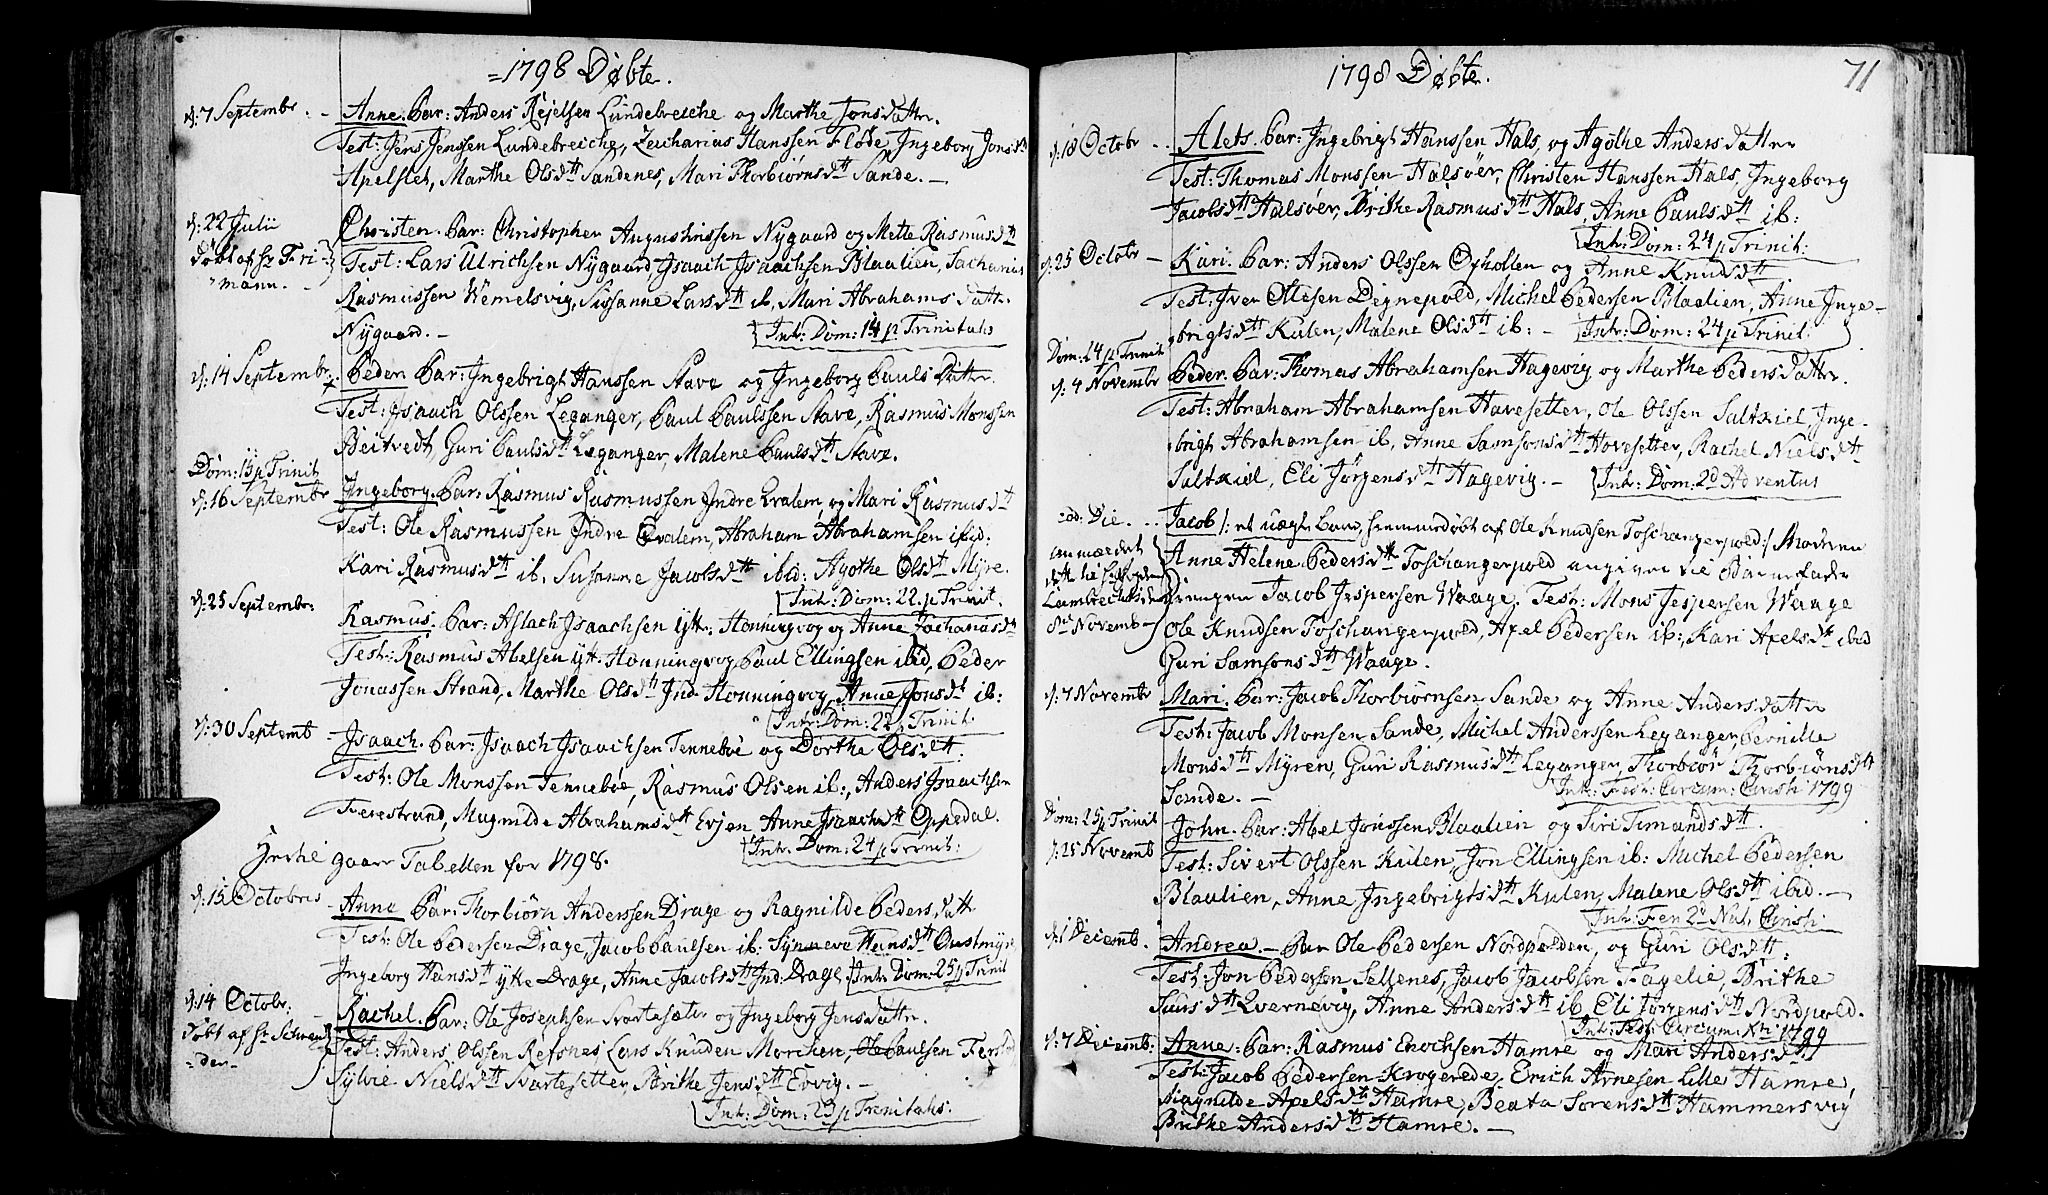 =1798 Døbte.
d: 7 Septembr. - Anne. Par: Anders Rejelsen Lundebreche og Marthe Jonsdattr.
Test: Jens Jenssen Lundebreiche, Zacharias Hanssen Fløde, Ingeborg Jonsdtt
Apelset, Marthe Olsdtt Sandenes, Mari Thorbiørnsdtt Sande. -
d: 22 Julii
døbt af Hr Fri-
mann. -
Christen. Par: Christopher Augustinssen Nygaard og Mette Rasmusdtt
Test: Lars Ulrichsen Nygaard, Isaach Isaachsen Blaalien, Sacharias
Rasmussen Wemelsvig, Sussanne Larsdtt ib, Mari Abrahamsdattr.
Nygaard. - Intr: Dom: 14 p Trinitatis
d: 14 Septembr. Peder. Par: Ingebrigt Hanssen Stave og Ingeborg Pauls Dattr.
Test: Isaach Olssen Leganger, Paul Paulssen Stave, Rasmus Monssen
Beitvedt, Guri Paulsdtt Leganger, Malene Paulsdtt Stave.
Dom: 15 p Trinit
d: 16 Septembr Ingeborg. Par: Rasmus Rasmussen Indre Qvalem, og Mari Rasmusdtt
Test: Ole Rasmussen Indre Qvalem, Abraham Abrahamsen ibid:
Kari Rasmusdtt ib, Susanne Jacobsdtt ibid: Agothe Olsdtt Myre.
Intr: Dom: 22. p Trinit.
d: 25 Septembr: Rasmus. Par: Aslach Isaachsen ytt: Honningvog og Anne Zachariasdtt
Test: Rasmus Abelsen ytt: Honningvog, Paul Ellingsen ibid, Peder
Jonassen Strand, Marthe Olsdtt Ind: Honningvog, Anne Jonsdt ib:
Intr: Dom: 22 p Trinit:
d: 30 Septemb - Isaach. Par: Isaach Isaachsen Tenneböe og Dorthe Olsdtt.
Test: Ole Monssen Tenneböe, Rasmus Olsen ib:, Anders Isaachsen
Torrestrand, Magnilde Abrahamsdtt Evjen, Anne Isaachsdtt Oppedal.
Intr: Dom: 24 p Trinit:
gaaer Tabellen for 1798.
d: 15 Octobris - Anne Par: Thorbiørn Anderssen Drage og Ragnilde Peders datt
Test: Ole Pedersen Drage, Jacob Paulsen ib: Synneve Hansdtt Qustmyr,
Ingeborg Hansdtt ytte Drage, Anne Jacobsdtt Ind: Drage Intr Dom: 25 p Trinit
d: 14 Octobr:
døbt af Hr Schrøe-
-der- Rachel. Par: Ole Josephsen Svartesæter og Ingeborg Jensdattr.
Test: Anders Olssen Refsnes, Lars Knuden Morchen, Ole Paulsen Ferstad
Sylvie Nielsdtt Svartesetter, Brithe Jensdtt Ervig. -
Intr: Dom: 23 p Trinitatis.
1798 Døbte. 71
d: 18 Octobr - Alets. Par: Ingebrigt Hanssen Hals, og Agothe Anders Dattr
Test: Thomas Monssen Halsøer, Christen Hanssen Hals, Ingeborg
Jacobsdtt Halsøer, Brithe Rasmusdtt Hals, Anne Paulsdtt ib:
Intr: Dom: 24 p Trinit:
d: 25 Octobr - Kari. Par: Anders Olssen Opholten og Anne Knudsdtt
Test: Iver Ollssen Degnepold, Michel Pedersen Blaalien, Anne Inge-
brigtsdtt Kulen, Malene Olsdtt ib: - Intr: Dom: 24 p Trinit:
Dom: 24 p Trinit
d: 4 Novembr Peder. Par: Thomas Abrahamsen Hagevig og Marthe Peders dattr.
Test: Abraham Abrahamsen Havesetter, Ole Olssen Saltkiel, Inge-
brigt Abrahamsen ib, Anne Samsonsdtt Hovesetter, Rachel Nielsdtt
Saltkiel, Eli Jørgensdtt Hagevig. - Intr: Dom: 2d Adventus
eod: Die. Jacob /: et uægte Barn, hiemmedøbt af Ole Knudsen Toschangerpold:/ Moderen
anmældet Anne Helene Pedersdtt Toschangerpold angiver til Barnefader
Drengen Jacob Jespersen Waage. Test: Mons Jespersen Waage
8de Novemb Ole Knudsen Toschangerpold, Axel Pedersen ib:, Kari Axelsdtt ibid
Guri Samsonsdtt Waage.
d: 7 Novembr Mari. Par: Jacob Thorbiørnsen Sande og Anne Anders dattr
Test: Jacob Monsen Sande, Michel Anderssen Leganger, Pernille
Monsdtt Myren, Guri Rasmusdtt Leganger, Thorbiør Thorbiønsdtt
Sande. - Intr: Fest: Circum: Christi 1799
Dom: 25 p Trinit
d: 25 Novemb John. Par: Abel Jonssen Blaalien og Siri Simundsdtt.
Test: Sivert Olssen Kulen, Jon Ellingsen ib: Michel Pedersen
Blaalien, Anne Ingebrigtsdtt Kulen, Malene Olsdtt ibid. -
Intr: Fer: 2d Nat: Christi
d: 1 Decemb. Andrea - Par Ole Pedersen Nordpolden, og Guri Olsdtt:
Test: Jon Pedersen Sellenes, Jacob Jacobsen Fagelie, Brithe
Qvernevig, Anne Andersdtt ib, Eli Jørensdtt Nordpold.
Intr: Fest: Circum: Xti 1799
d: 7 Decemb: Anne: Par: Rasmus Enochsen Hamre og Mari Anders:dtt
Test: Jacob Pedersen Krogerede, Erich Arnesen Lille Hamre,
Magnilde Axelsdtt Hamre, Beata Sørensdtt Hammersvig
Brithe Andersdtt Hamre. -